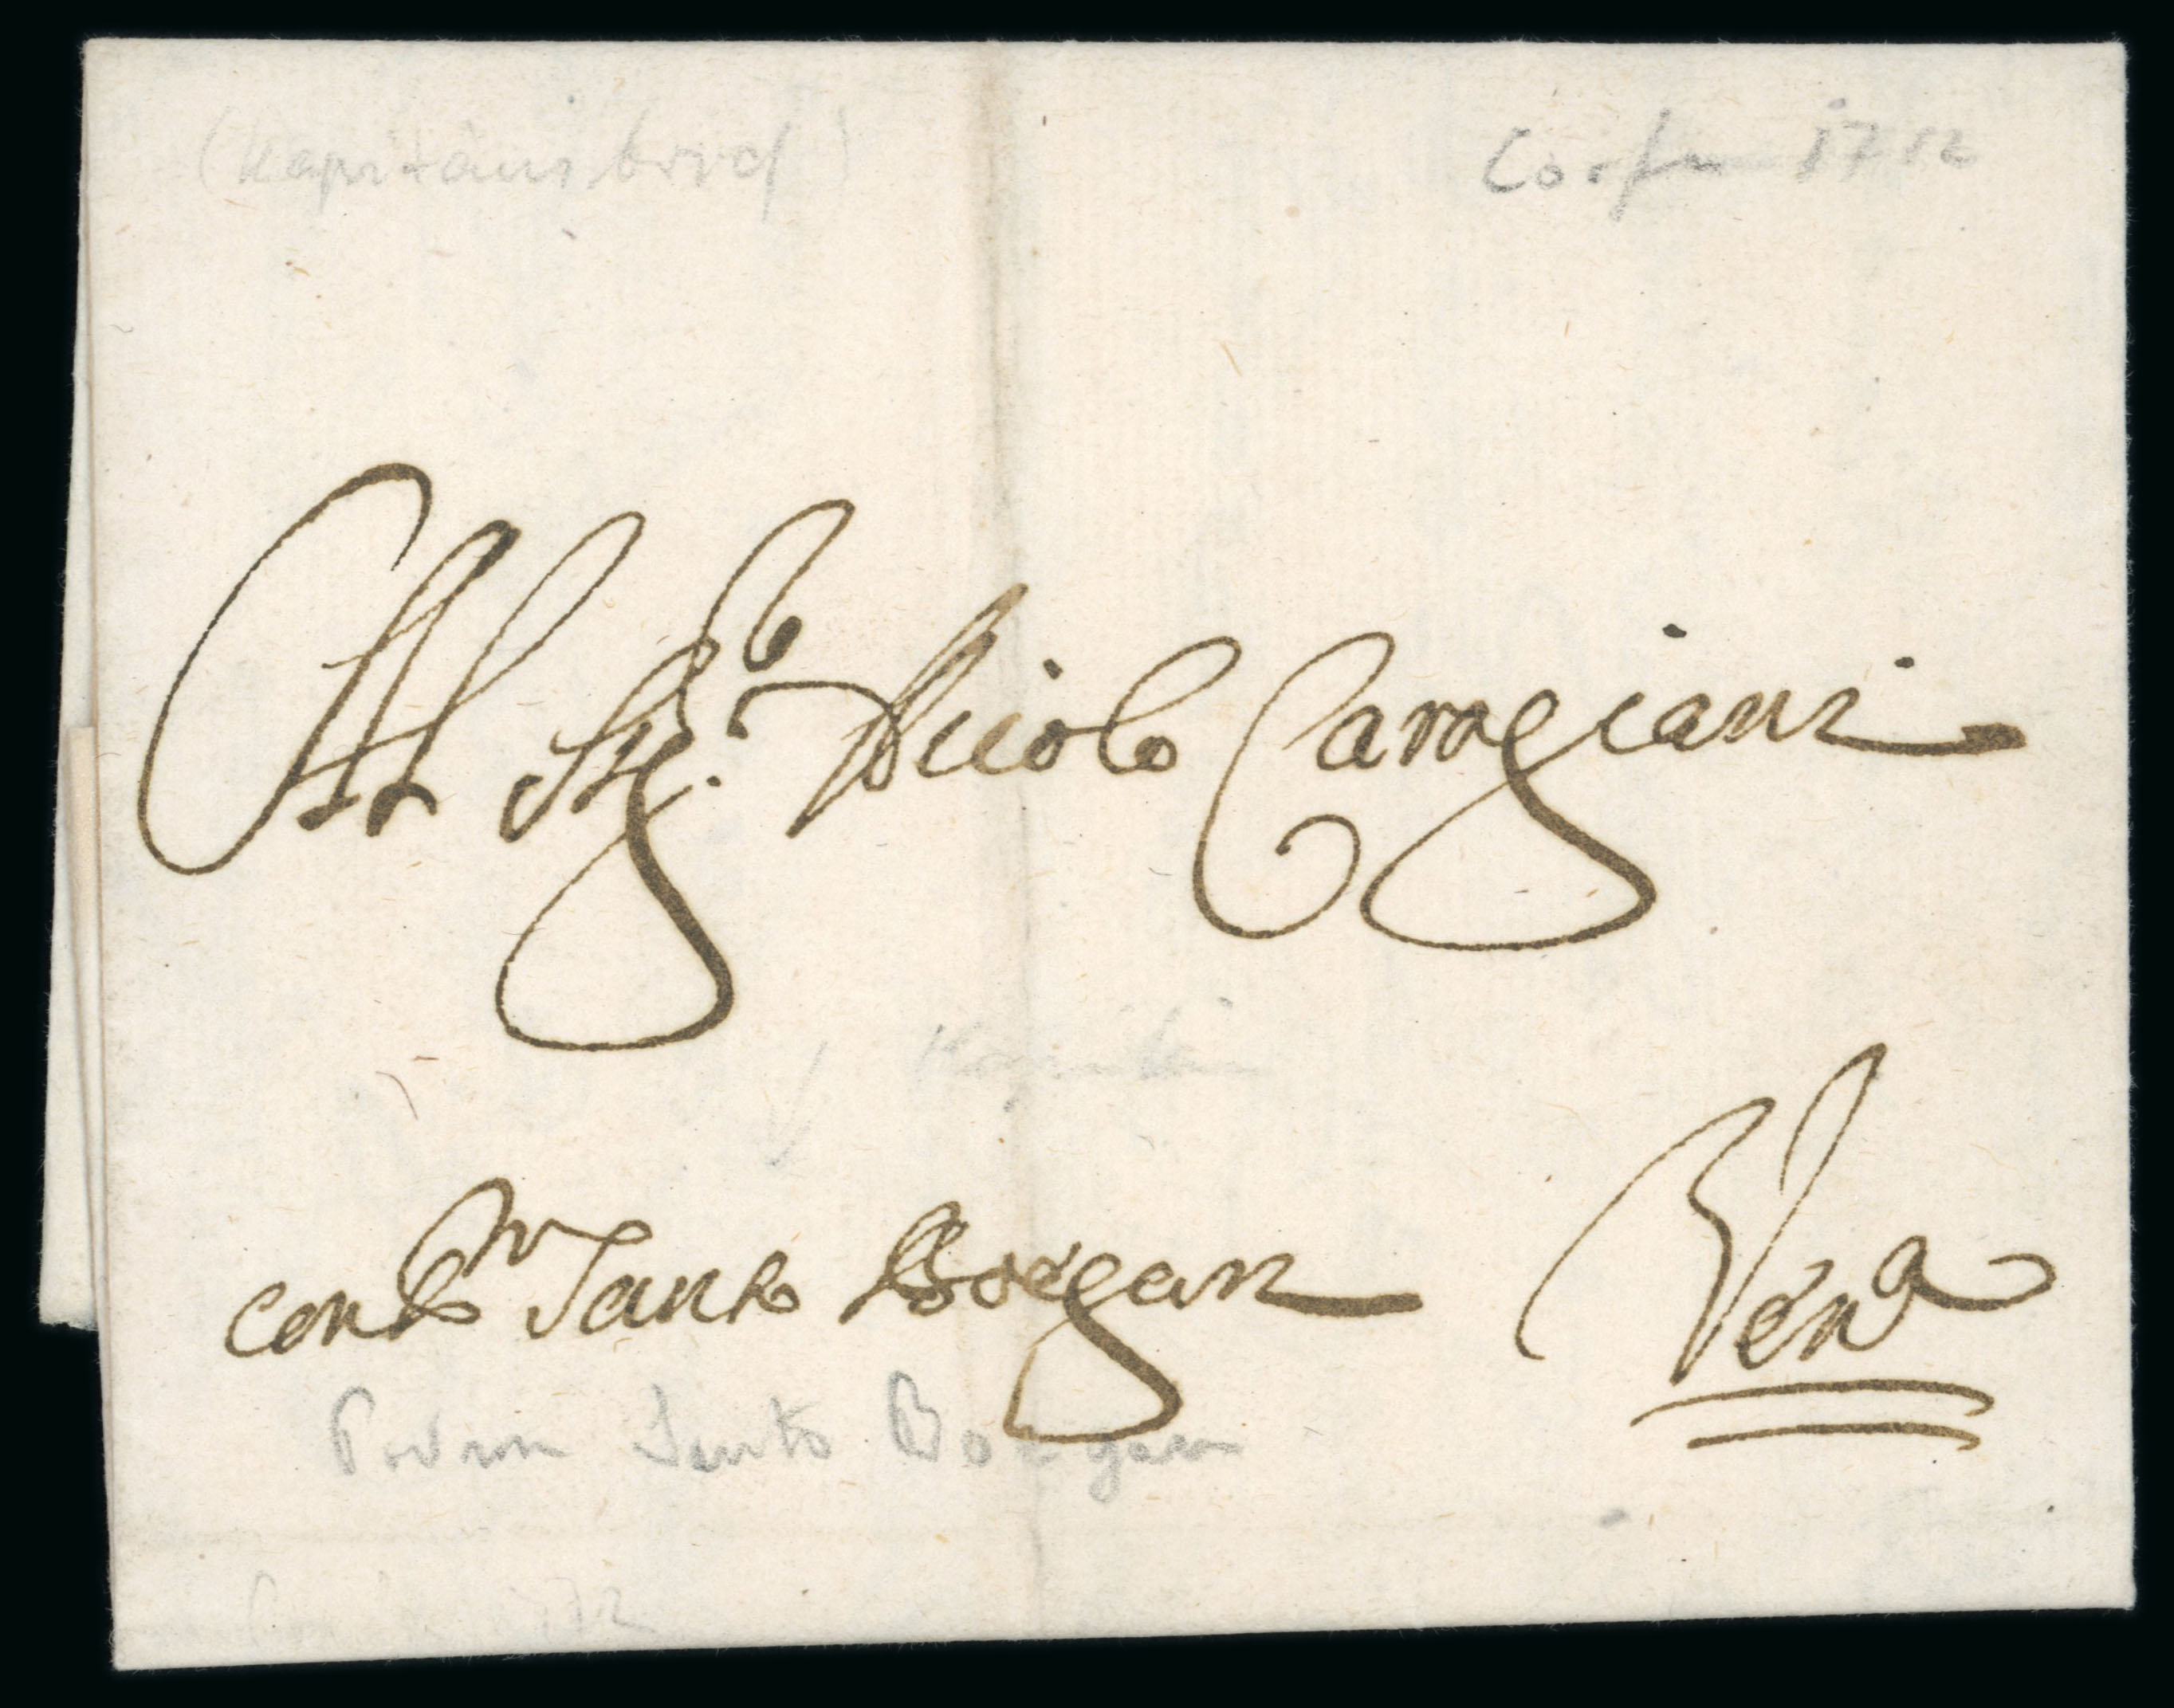 (Kapitänsbrief) Corfu 1712
Al Sig.r Nicolo Caragiani
Kapitän
con Pn Santo Borgan Vena
Padron Santo Borgan